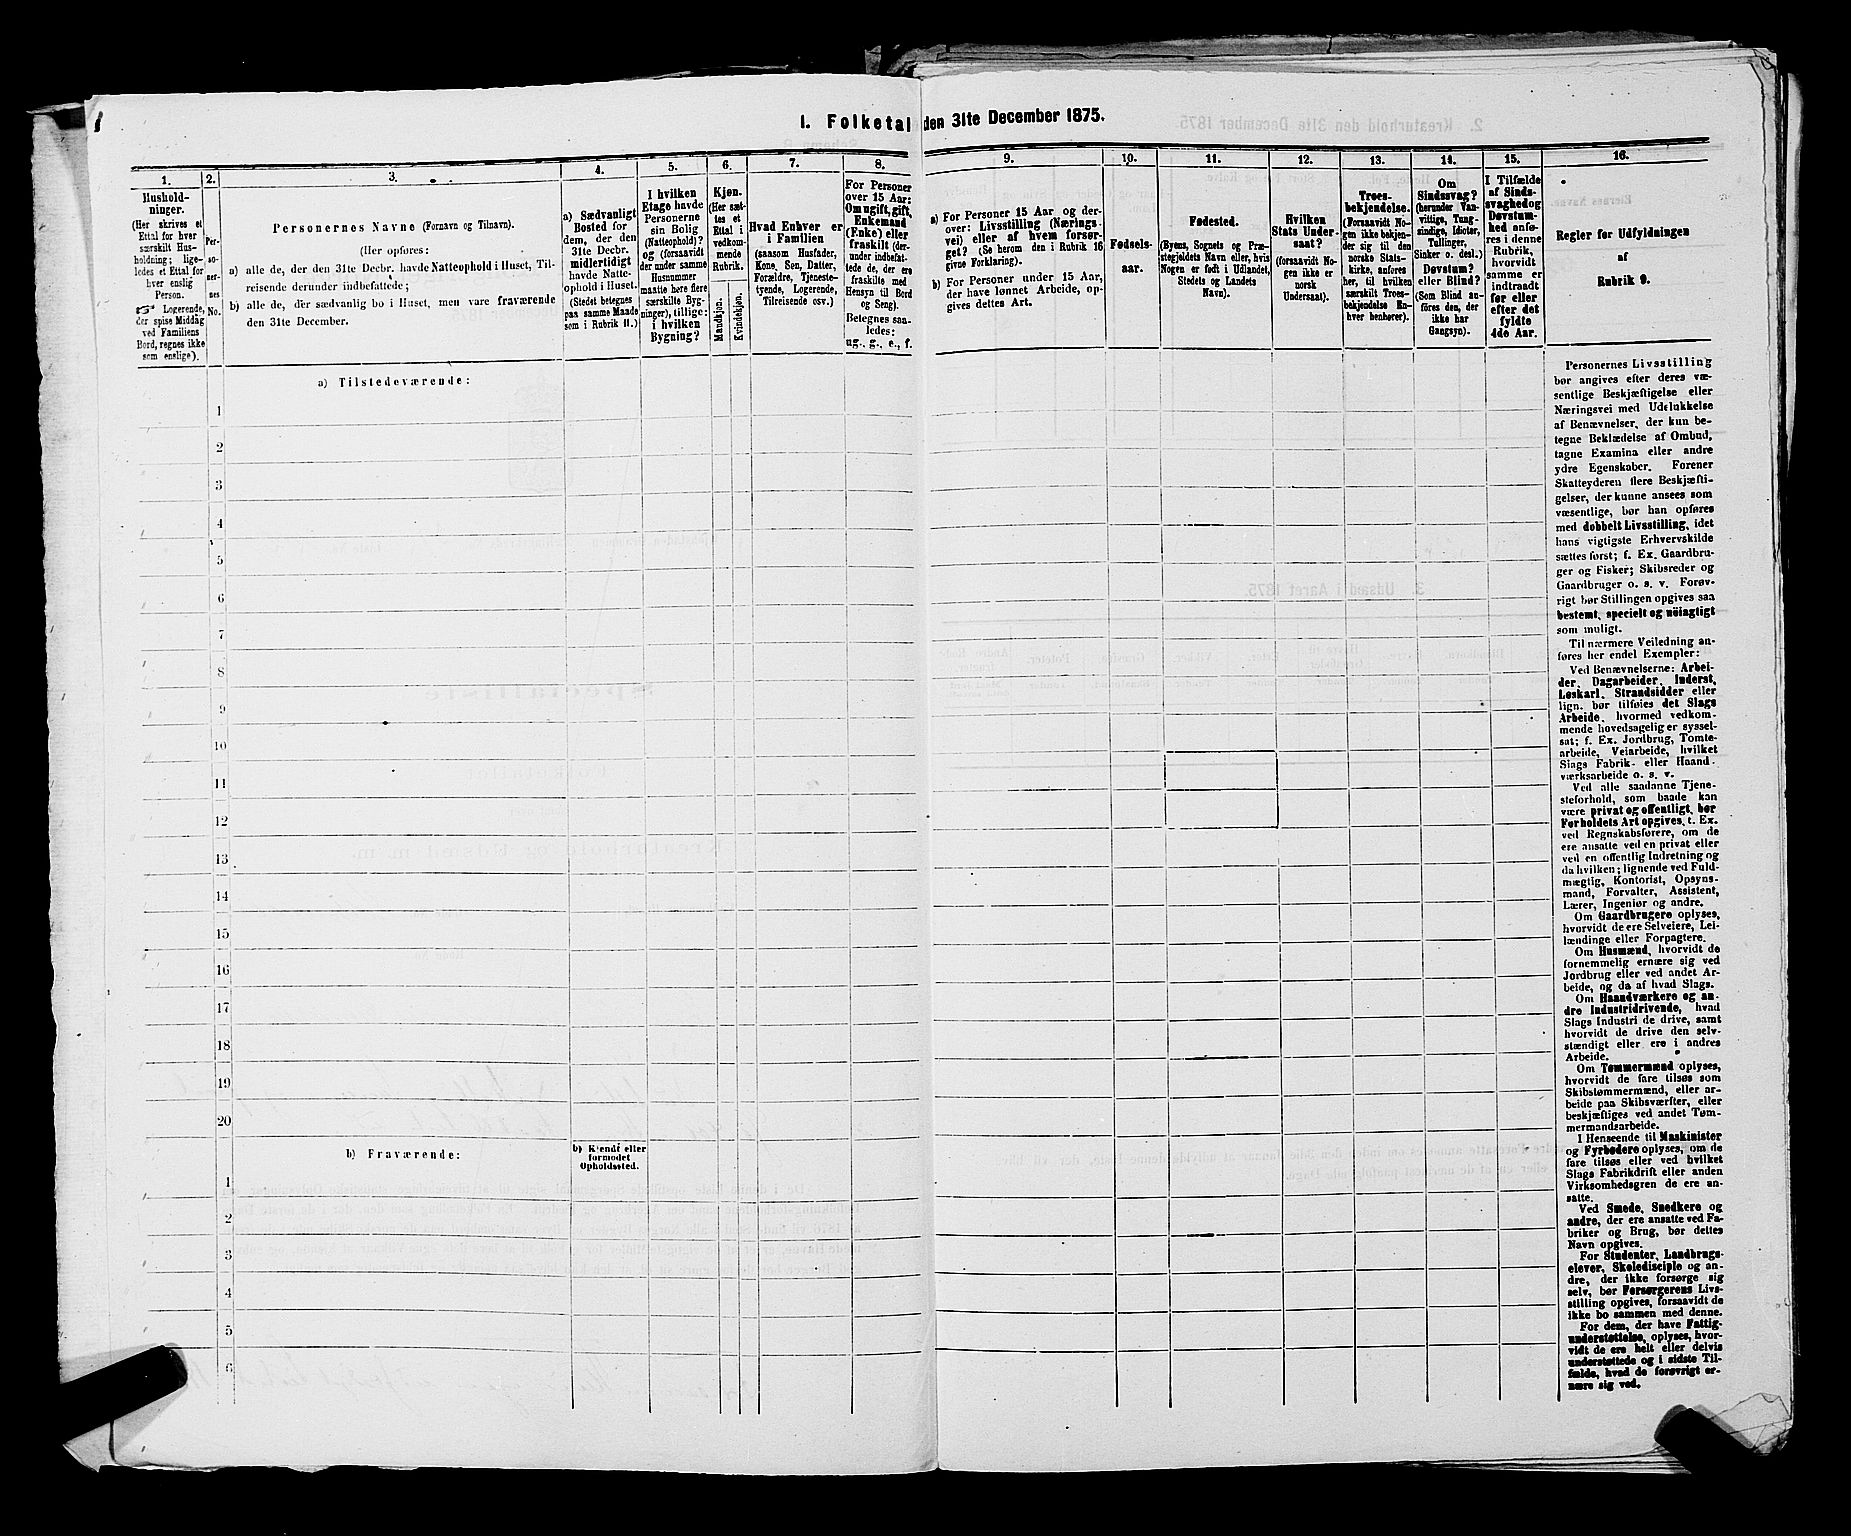 I. Folketal den 31te December 1875.
1.
Hushold-
ninger.
(Her skrives et
Ettal for hver
særskilt Hus-
holdning; lige-
ledes et Ettal for
hver enslig
Person.
☞ Logerende,
der spise Middag
ved Familiens
Bord, regnes ikke
som enslige).
2.
Per-
so-
ner-
nes
No.
3.
Personernes Navne (Fornavn og Tilnavn).
(Her opføres:
a) alle de, der den 31te Decbr. havde Natteophold i Huset, Til-
reisende derunder indbefattede;
b) alle de, der sædvanlig bo i Huset, men vare fraværende
den 31te December.
4.
a) Sædvanligt
Bosted for
dem, der den
31te Decbr.
midlertidigt
havde Natte-
ophold i Huset.
(Stedet betegnes
paa samme Maade
som i Rubrik 11.)
5.
I hvilken
Etage havde
Personerne
sin Bolig
(Natteophold)?
og (forsaavidt
der under samme
Husnummer
maatte høre flere
særskilte Byg-
ninger), tillige:
i hvilken
Bygning?
6.
Kjøn.
(Her sæt-
tes et
Ettal i
vedkom-
mende
Rubrik.
Mandkjøn.
Kvindekjøn.
7.
Hvad Enhver er
i Familien
(saasom Husfader,
Kone, Søn, Datter,
Forældre, Tjeneste-
tyende, Logerende,
Tilreisende osv.)
8.
For Personer
over 15 Aar:
Om ugift, gift,
Enkemand
(Enke) eller
fraskilt (der-
under indbefat-
tede de, der ere
fraskilte med
Hensyn til Bord
og Seng).
Betegnes saa-
ledes:
ug., g., e., f.
9.
a) For Personer 15 Aar og der-
over: Livsstilling (Nærings-
vei) eller af hvem forsør-
get? (Se herom den i Rubrik 16
givne Forklaring).
b) For Personer under 15 Aar,
der have lønnet Arbeide, op-
gives dettes Art.
10.
Fødsels-
aar.
11.
Fødested.
(Byens, Sognets og Præ-
stegjeldets Navn eller, hvis
Nogen er født i Udlandet,
Stedets og Landets
Navn).
12.
Hvilken
Stats Under-
saat?
(forsaavidt No-
gen ikke er
norsk
Undersaat).
13.
Troes-
bekjendelse.
(Forsaavidt No-
gen ikke bekjen-
der sig til den
norske Stats-
kirke, anføres
her, til hvilken
særskilt Troes-
bekjendelse En-
hver henhører).
14.
Om
Sindssvag?
(herunder Van-
vittige, Tung-
sindige, Idioter,
Tullinger,
Sinker o. desl.)
Døvstum?
eller Blind?
(Som Blind an-
føres den, der
ikke har
Gangsyn).
15.
I Tilfælde
af Sinds-
svaghed og
Døvstum-
hed anfø-
res i denne
Rubrik,
hvorvidt
samme er
indtraadt
før eller
efter det
fyldte
4de Aar.
16.
Regler for Udfyldningen
af
Rubrik 9.
a) Tilstedeværende:
1
2
3
4
5
6
7
8
9
10
11
12
13
14
15
16
17
18
19
20
b) Fraværende:
b) Kjendt eller
formodet
Opholdssted.
1
2
3
4
5
6
Personernes Livsstilling
bør angives efter deres væ-
sentlige Beskjæftigelse eller
Næringsvei med Udelukkelse
af Benævnelser, der kun be-
tegne Beklædelse af Ombud,
tagne Examina eller andre
ydre Egenskaber. Forener
Skatteyderen flere Beskjæfti-
gelser, der kunne ansees som
væsentlige, bør han opføres
med dobbelt Livsstilling, idet
hans vigtigste Erhvervskilde
sættes først; f. Ex. Gaardbru-
ger og Fisker; Skibsreder og
Gaardbruger o. s. v. Forøv-
rigt bør Stillingen opgives saa
bestemt, specielt og nøiagtigt
som muligt.
Til nærmere Veiledning an-
føres her endel Exempler:
Ved Benævnelserne: Arbei-
der, Dagarbeider, Inderst,
Løskarl, Strandsidder eller
lign. bør tilføies det Slags
Arbeide, hvormed vedkom-
mende hovedsagelig er syssel-
sat; f. Ex. Jordbrug, Tomte-
arbeide, Veiarbeide, hvilket
Slags Fabrik- eller Haand-
værksarbeide o. s. v.
Ved alle saadanne Tjene-
steforhold, som baade kan
være privat og offentligt, bør
Forholdets Art opgives, t. Ex.
ved Regnskabsførere, om de
ere ansatte ved en privat eller
ved en offentlig Indretning og
da hvilken; lignende ved Fuld-
mægtig, Kontorist, Opsyns-
mand, Forvalter, Assistent,
Lærer, Ingeniør og andre.
Om Gaardbrugere oplyses,
hvorvidt de ere Selveiere, Lei-
lændinge eller Forpagtere.
Om Husmænd, hvorvidt de
fornemmelig ernære sig ved
Jordbrug eller ved andet Ar-
beide, og da af hvad Slags.
Om Haandværkere og an-
dre Industridrivende, hvad
Slags Industri de drive, samt
hvorvidt de drive den selv-
stændigt eller ere i andres
Arbeide.
Om Tømmermænd oplyses,
hvorvidt de fare tilsøs som
Skibstømmermænd, eller ar-
beide paa Skibsværfter, eller
beskjæftiges ved andet Tøm-
mermandsarbeide.
I Henseende til Maskinister
og Fyrbødere oplyses, om de
fare tilsøs eller ved hvilket
Slags Fabrikdrift eller anden
Virksomhedsgren de ere an-
satte.
Ved Smede, Snedkere og
andre, der ere ansatte ved Fa-
briker og Brug, bør dettes
Navn opgives.
For Studenter, Landbrugs-
elever, Skoledisciple og an-
dre, der ikke forsørge sig
selv, bør Forsørgerens Livs-
stilling opgives, forsaavidt de
ikke bo sammen med denne.
For dem, der have Fattig-
understøttelse, oplyses, hvor-
vidt de ere helt eller delvis
understøttede og i sidste Til-
fælde, hvad de forøvrigt er-
nære sig ved.